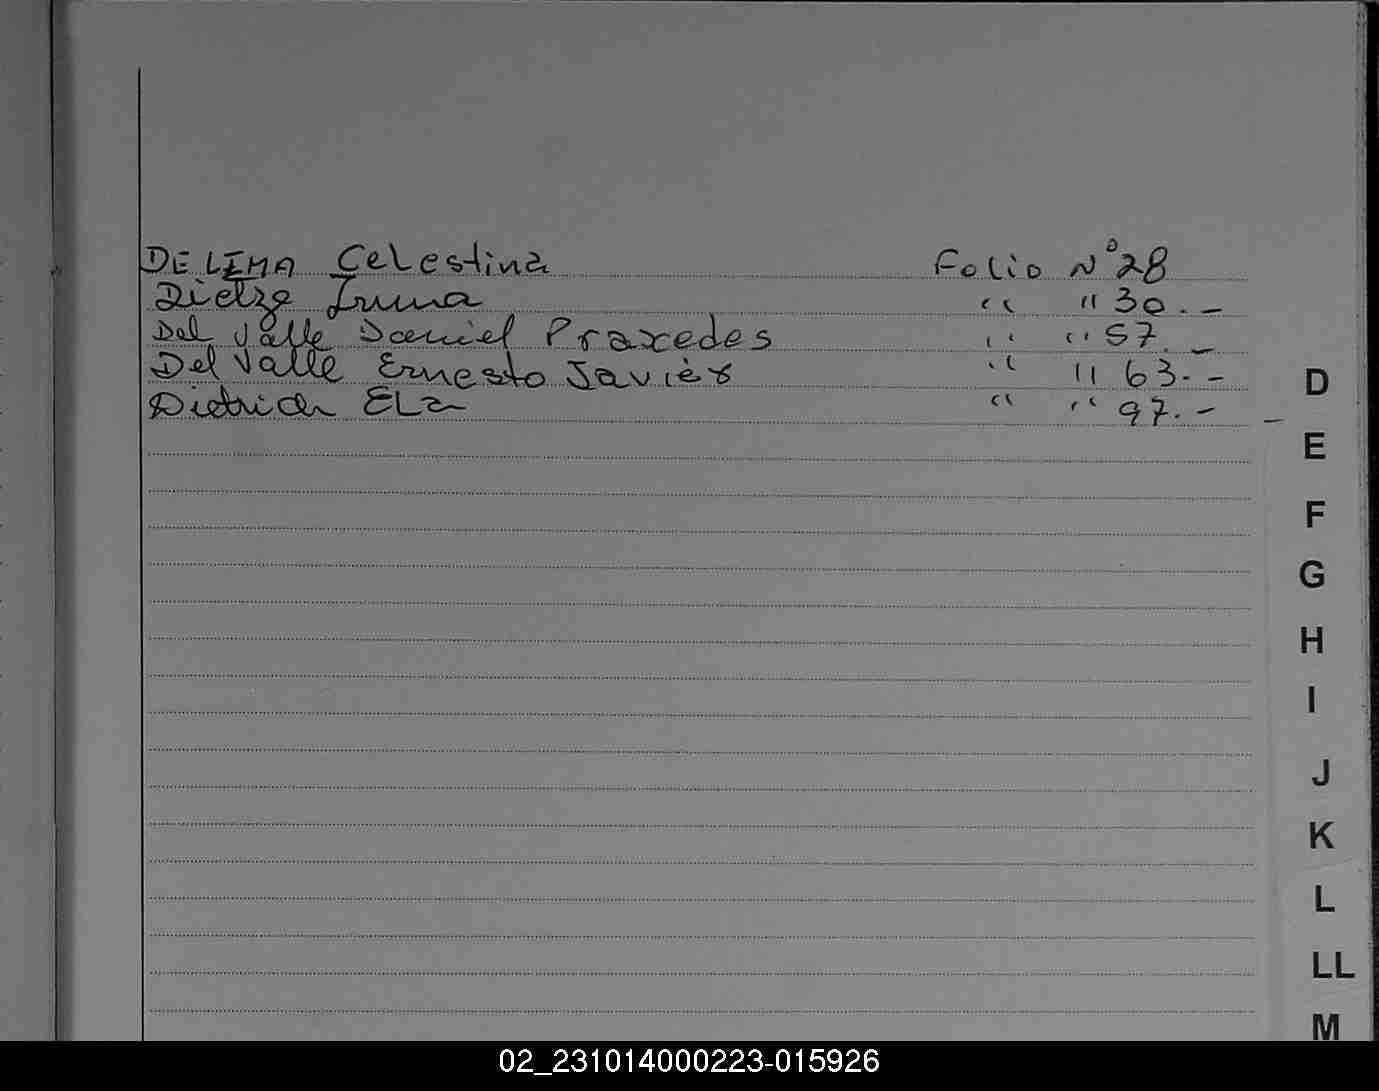 DE LIMA Celestina Folio N° 28
Dietze Irma " " 30.-
Del Valle Daniel Praxedes " " 57.-
Del Valle Ernesto Javier " " 63.-
Dietrich ELa " " 97.-
D
E
F
G
H
I
J
K
L
LL
M
02_231014000223-015926